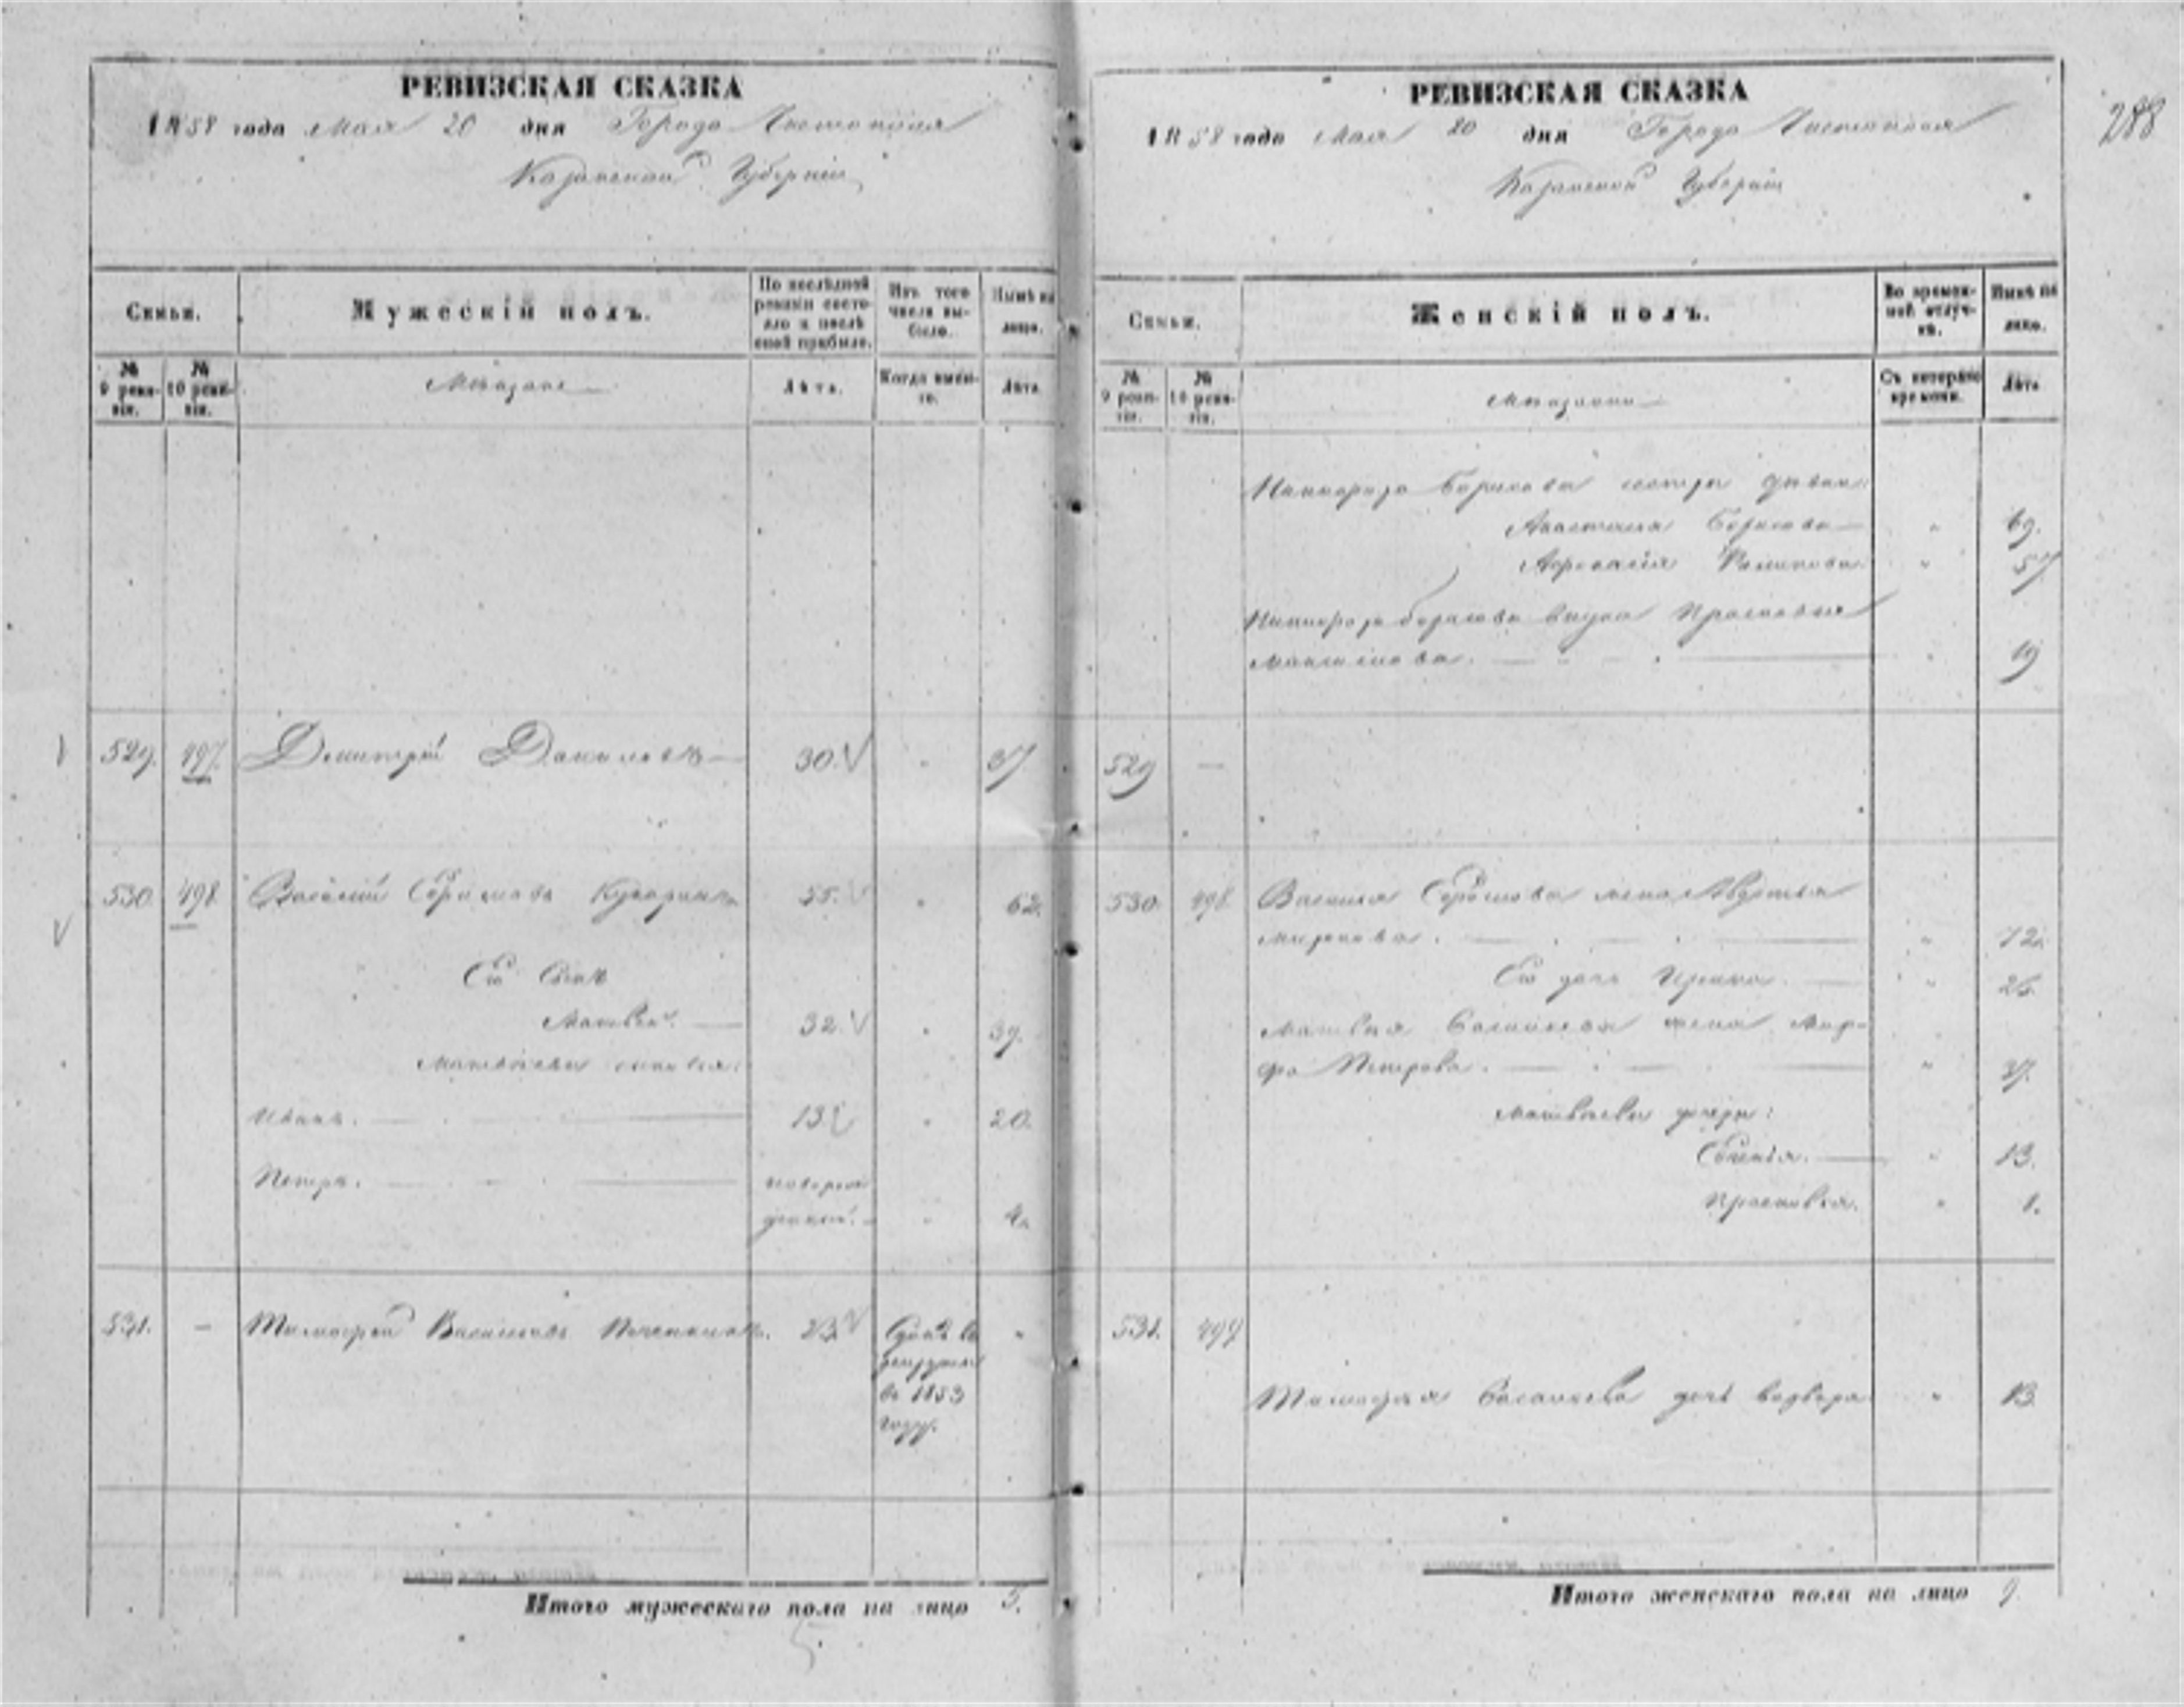 РЕВИЗСКАЯ СКАЗКА
1858 года Мая 20 дня Города Чистополя
Казанской Губернии
Семьи.
Мужескій полъ.
По послѣдней ревизіи состояло и послѣ оной прибыло.
Изъ того числа выбыло.
Нынѣ на лицо.
№ 9 ревизіи.
№ 10 ревизіи.
Мѣщане
Лѣта.
Когда именно.
Лѣта.
529. 497. Дмитрій Даниловъ 30. 37.
530. 498. Василій Ефимовъ 55. 62.
Его Сынъ
Матвей. 32. 39.
Матвѣевы сыновья:
Иванъ. 13 20.
Петръ. новорож
денный. 4.
531. – Тимофей Васильевъ 23.
въ 1853
году.
Итого мужескаго пола на лицо 5.
5.
РЕВИЗСКАЯ СКАЗКА
288
1858 года Мая 20 дня Города Чистополя
Казанской Губерніи
Семьи.
Женскій полъ.
Во временной отлучкѣ.
Нынѣ на лицо.
№ 9 ревизіи.
№ 10 ревизіи.
Мѣщанки
Съ котораго времени.
Лѣта
Борисова сестры
Анастасія Борисова 69.
57
внука Прасковья
19
529 —
530. 498. Василья Ефимова жена Авдотья
Миронова. 72.
Его дочь Ирина. 26.
Матвея Васильева жена Мар-
фа Петрова. 37.
Матвѣевы дочери:
Евгенія. 13.
Прасковья. 1.
531. 499
Тимофея Васильева дочь 13
Итого женскаго пола на лицо 9